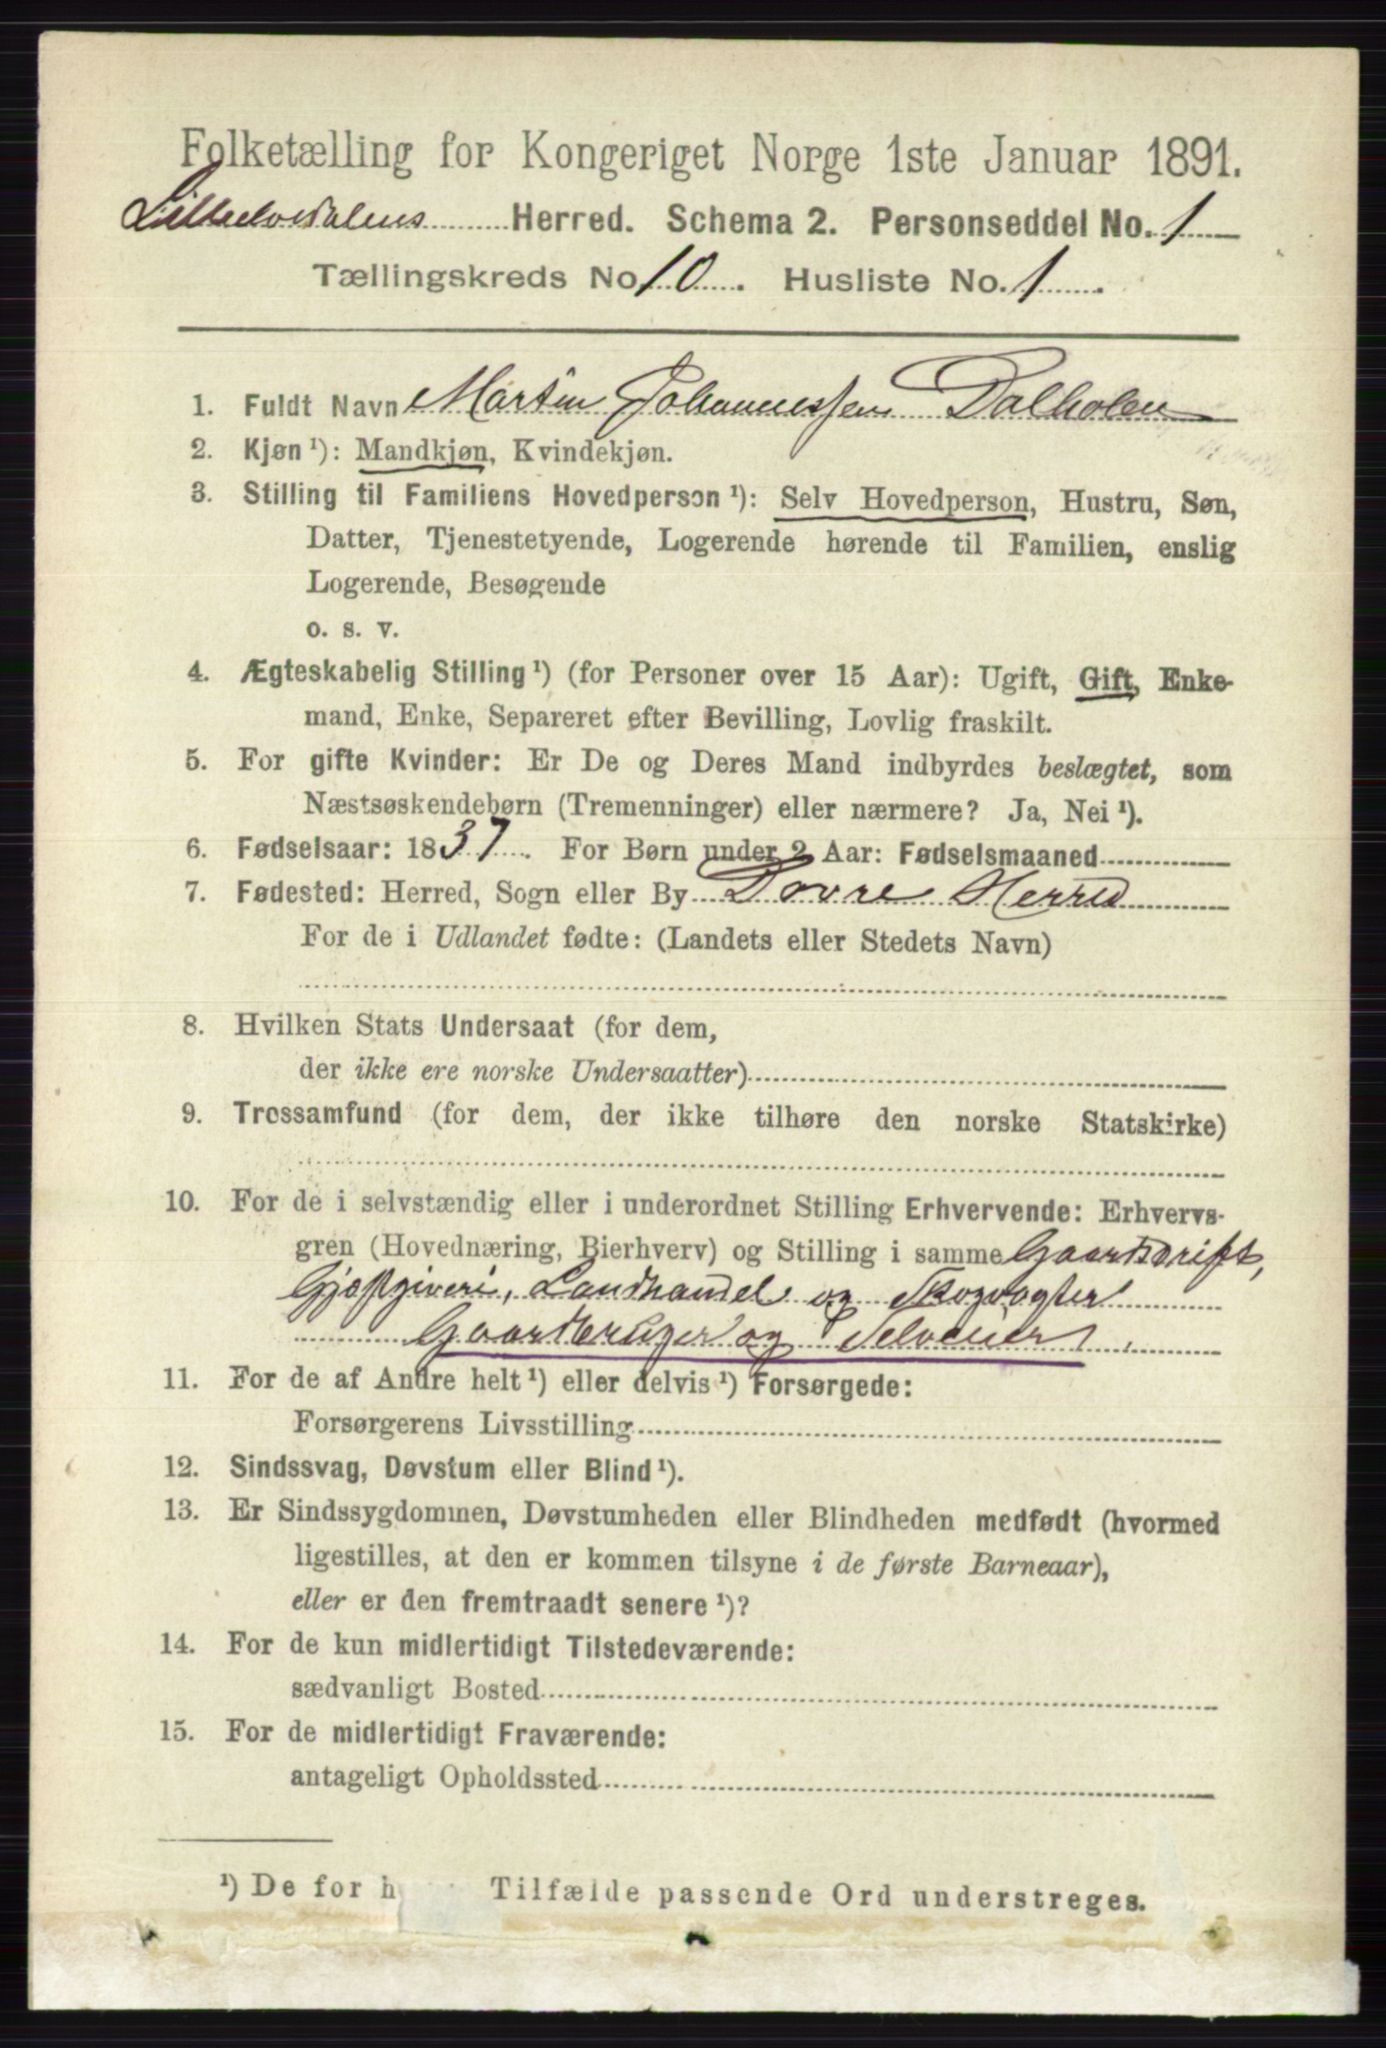 Folketælling for Kongeriget Norge 1ste Januar 1891.
Lilleelvedalens Herred. Schema 2. Personseddel No. 1
Tællingskreds No 10. Husliste No. 1.
1. Fuldt Navn Martin Johannessen Dalholen
2. Kjøn¹): Mandkjøn, Kvindekjøn.
3. Stilling til Familiens Hovedperson¹): Selv Hovedperson, Hustru, Søn,
Datter, Tjenestetyende, Logerende hørende til Familien, enslig
Logerende, Besøgende
o. s. v.
4. Ægteskabelig Stilling¹) (for Personer over 15 Aar): Ugift, Gift, Enke-
mand, Enke, Separeret efter Bevilling, Lovlig fraskilt.
5. For gifte Kvinder: Er De og Deres Mand indbyrdes beslægtet, som
Næstsøskendebørn (Tremenninger) eller nærmere? Ja, Nei¹).
6. Fødselsaar: 1837. For Børn under 2 Aar: Fødselsmaaned
7. Fødested: Herred, Sogn eller By Dovre Herred
For de i Udlandet fødte: (Landets eller Stedets Navn)
8. Hvilken Stats Undersaat (for dem,
der ikke ere norske Undersaatter)
9. Trossamfund (for dem, der ikke tilhøre den norske Statskirke)
10. For de i selvstændig eller i underordnet Stilling Erhvervende: Erhvervs-
gren (Hovednæring, Bierhverv) og Stilling i samme Gaardsdrift,
Gjæstgiveri, Landhandel og Skogvogter
Gaardbruger og Selveier.
11. For de af Andre helt¹) eller delvis¹) Forsørgede:
Forsørgerens Livsstilling
12. Sindssvag, Døvstum eller Blind¹).
13. Er Sindssygdommen, Døvstumheden eller Blindheden medfødt (hvormed
ligestilles, at den er kommen tilsyne i de første Barneaar),
eller er den fremtraadt senere¹)?
14. For de kun midlertidigt Tilstedeværende:
sædvanligt Bosted
15. For de midlertidigt Fraværende:
antageligt Opholdssted
¹) De for h Tilfælde passende Ord understreges.